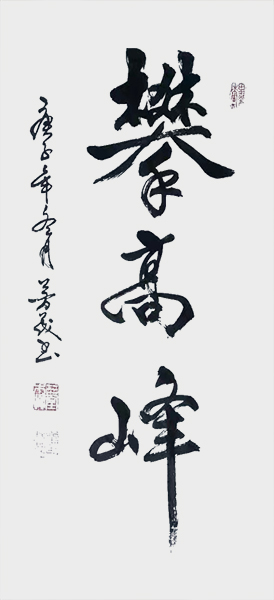 攀高峰
庚子年冬月
书